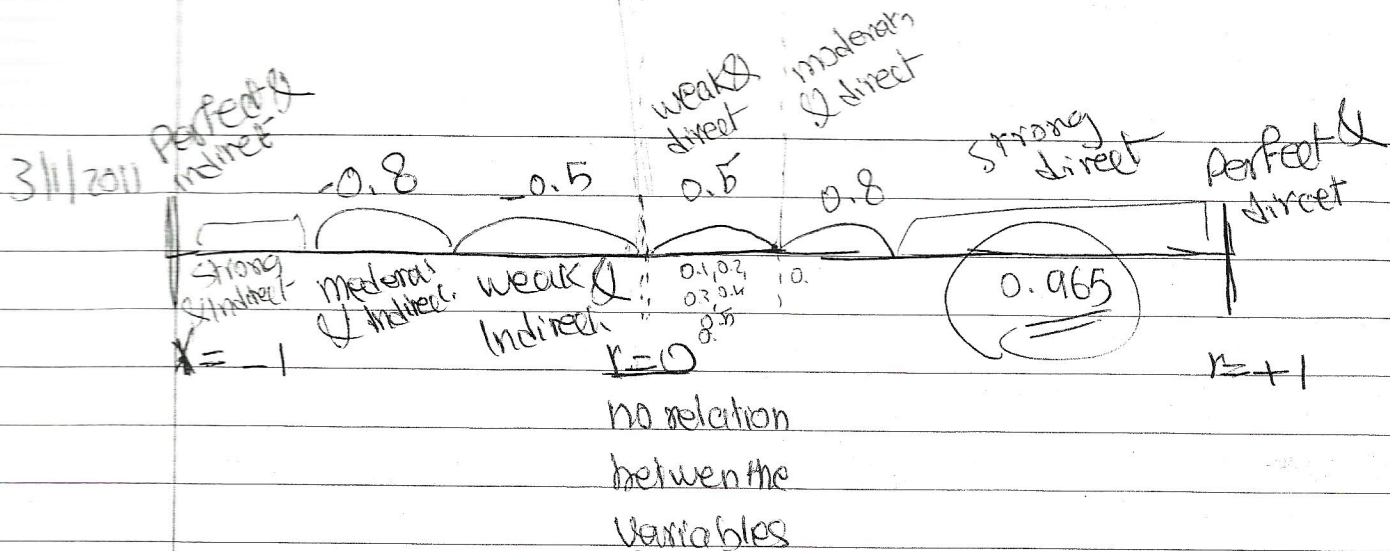 3/1/2011
Perfect &
indiret
-0.8
-0.5
weak &
direct
0.5
moderat
& direct
0.8
strong
direct
Perfect &
dircet
strong
& Indirect
moderat
& Indirec.
weak &
Indirect.
0.1, 0.2,
0.3, 0.4
0.5
0.
0.965
r = -1
r=0
r=+1
no relation
betwen the
variables